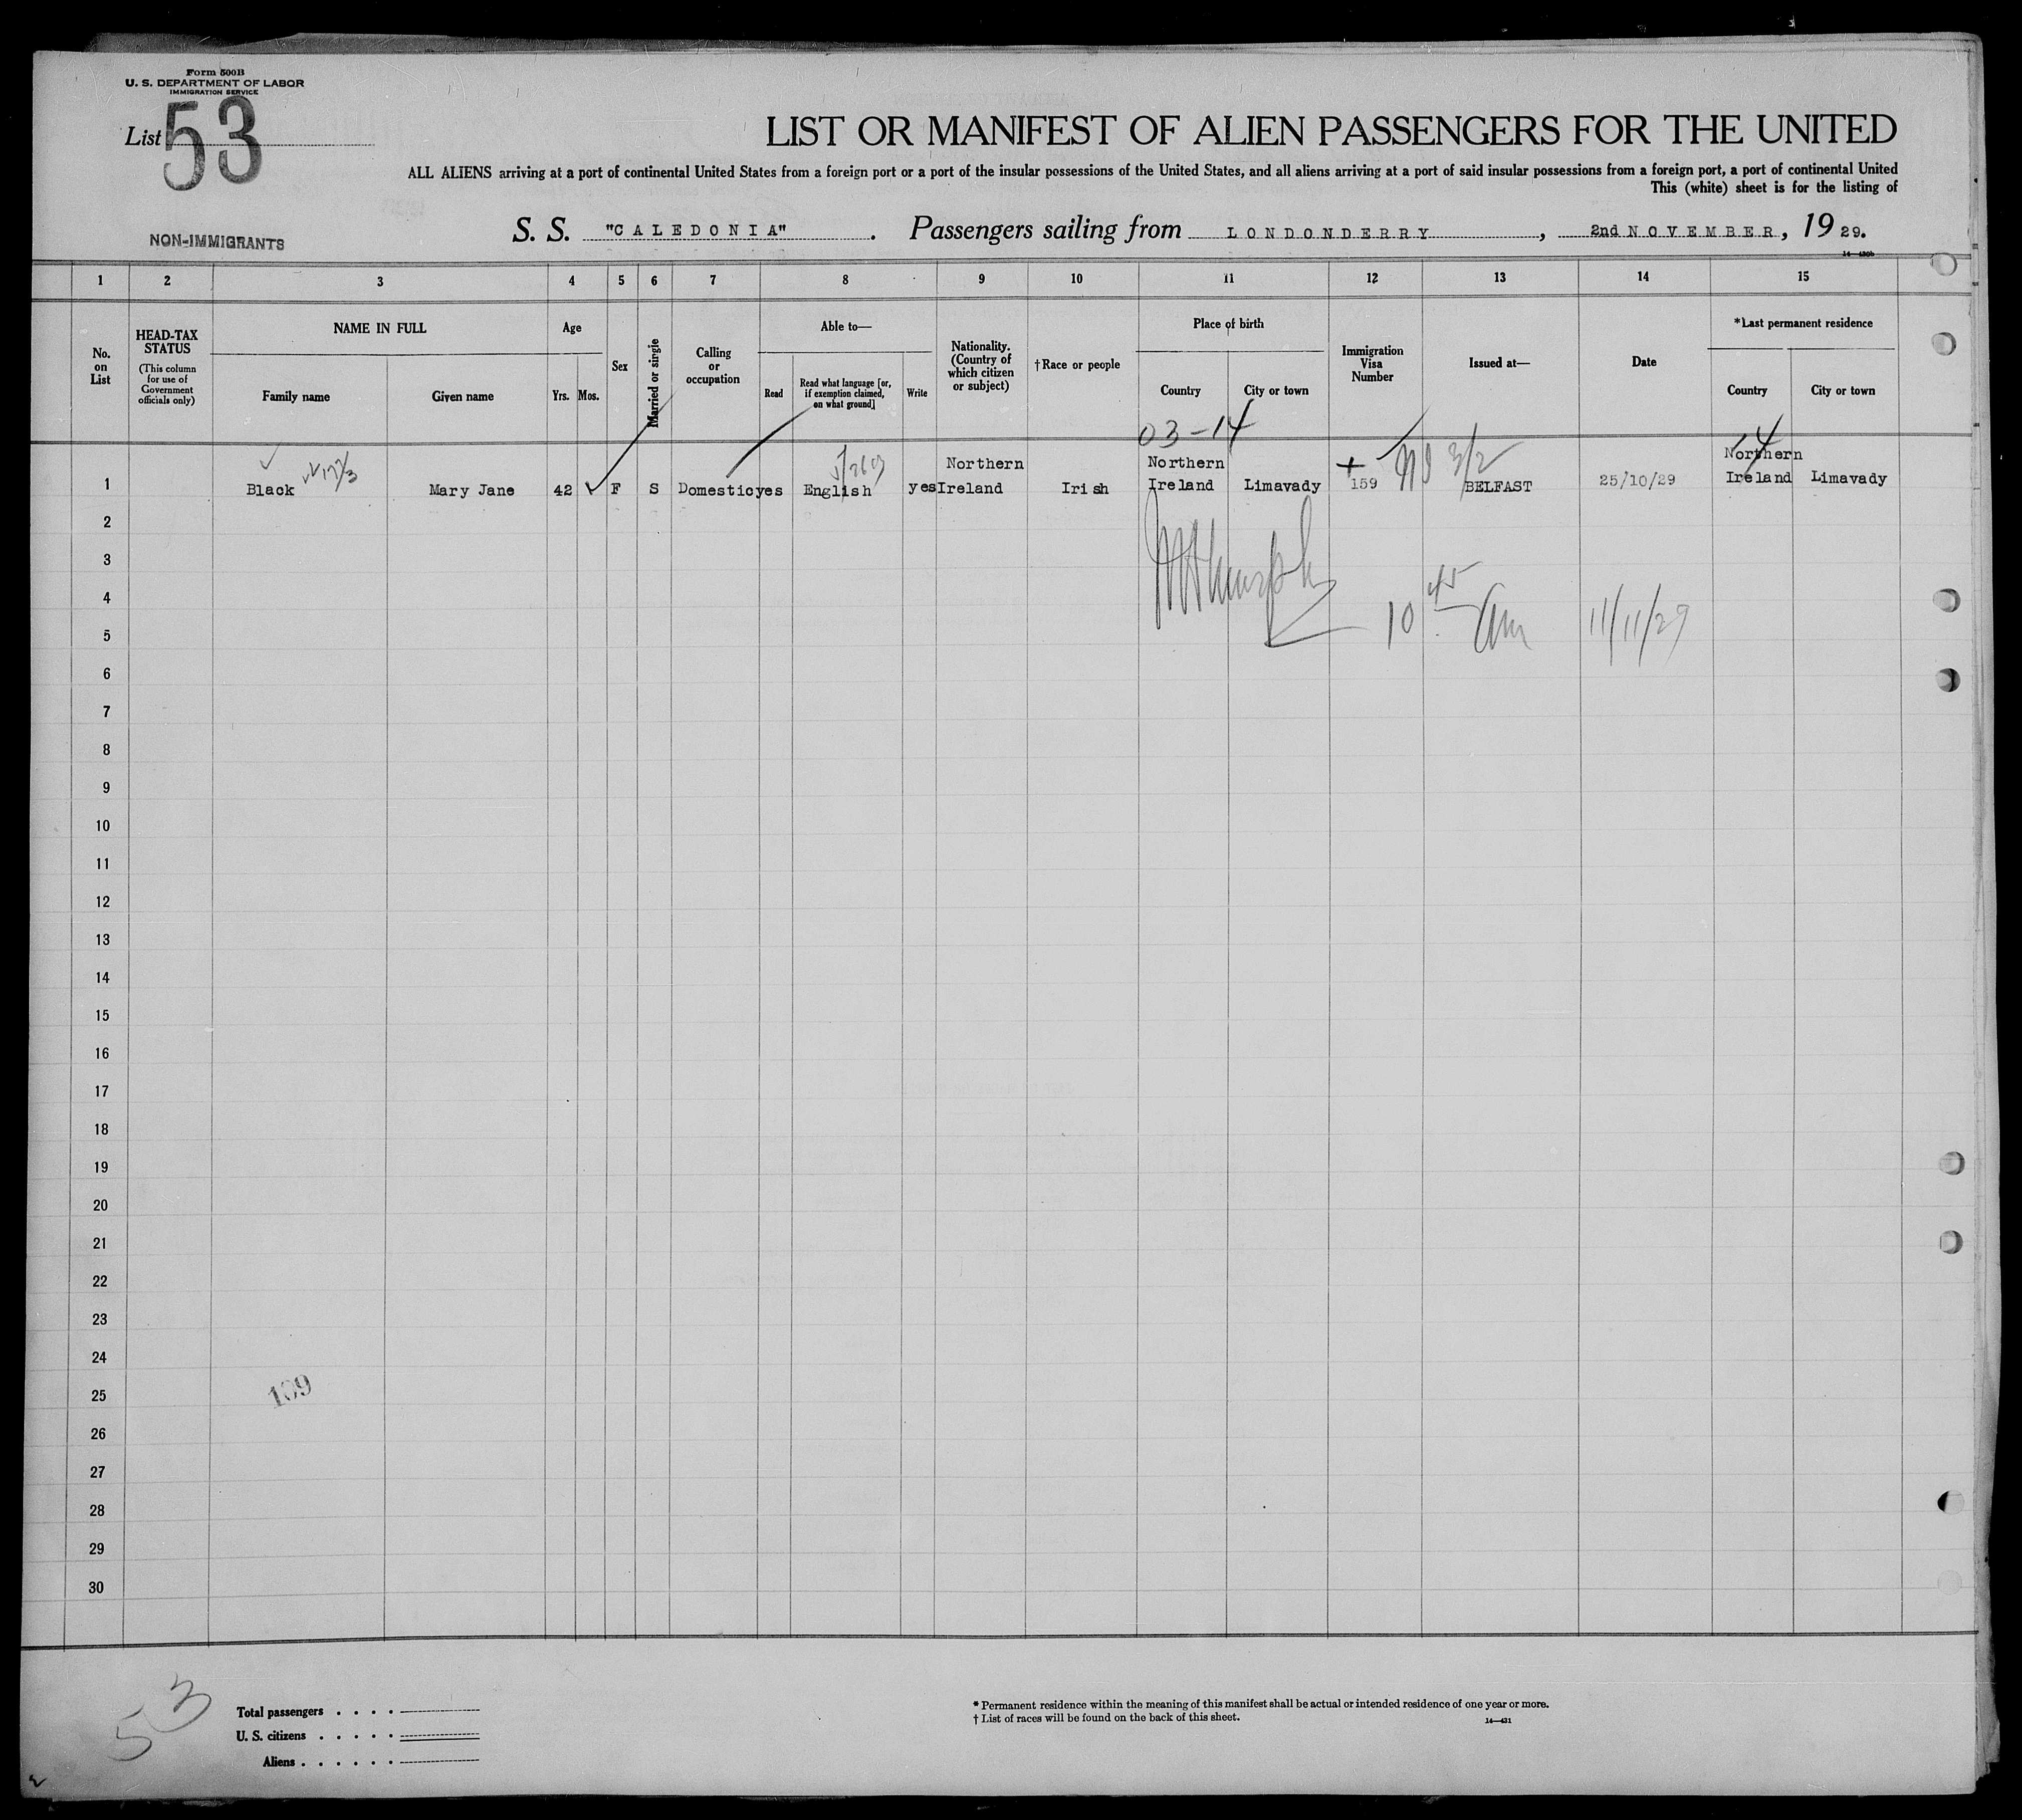 Form 500B
U. S. DEPARTMENT OF LABOR
IMMIGRATION SERVICE
List 53
LIST OR MANIFEST OF ALIEN PASSENGERS FOR THE UNITED
ALL ALIENS arriving at a port of continental United States from a foreign port or a port of the insular possessions of the United States, and all aliens arriving at a port of said insular possessions from a foreign port, a port of continental United
This (white) sheet is for the listing of
NON-IMMIGRANTS
S. S. "CALEDONIA". Passengers sailing from LONDONDERRY, 2nd NOVEMBER, 1929.
1 2 3 4 5 6 7 8 9 10 11 12 13 14 15
No. on List
HEAD-TAX STATUS
(This column for use of Government officials only)
NAME IN FULL
Family name
Given name
Age
Yrs.
Mos.
Sex
Married or single
Calling or occupation
Able to—
Read
Read what language [or, if exemption claimed, on what ground]
Write
Nationality. (Country of which citizen or subject)
†Race or people
Place of birth
Country
City or town
Immigration Visa Number
Issued at—
Date
*Last permanent residence
Country
City or town
03-14
14
1 Black Mary Jane 42 F S Domestic yes English yes Northern Ireland Irish Northern Ireland Limavady 159 BELFAST 25/10/29 Northern Ireland Limavady
2
3
4
10 45 am 11/11/29
5
6
7
8
9
10
11
12
13
14
15
16
17
18
19
20
21
22
23
24
25
109
26
27
28
29
30
53
Total passengers
U. S. citizens
Aliens
* Permanent residence within the meaning of this manifest shall be actual or intended residence of one year or more.
† List of races will be found on the back of this sheet.
14—431